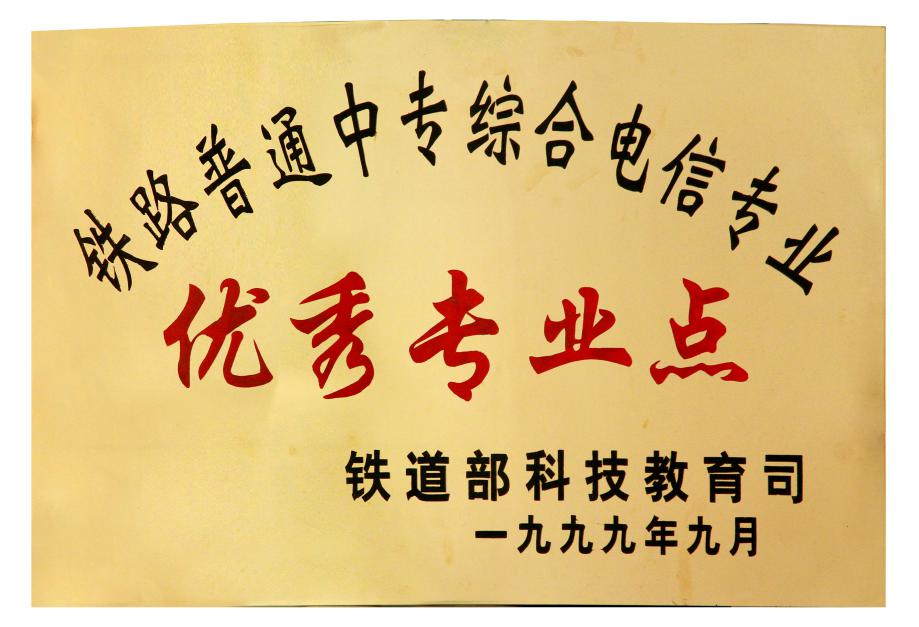 铁路普通中专综合电信专业
优秀专业点
铁道部科技教育司
一九九九年九月